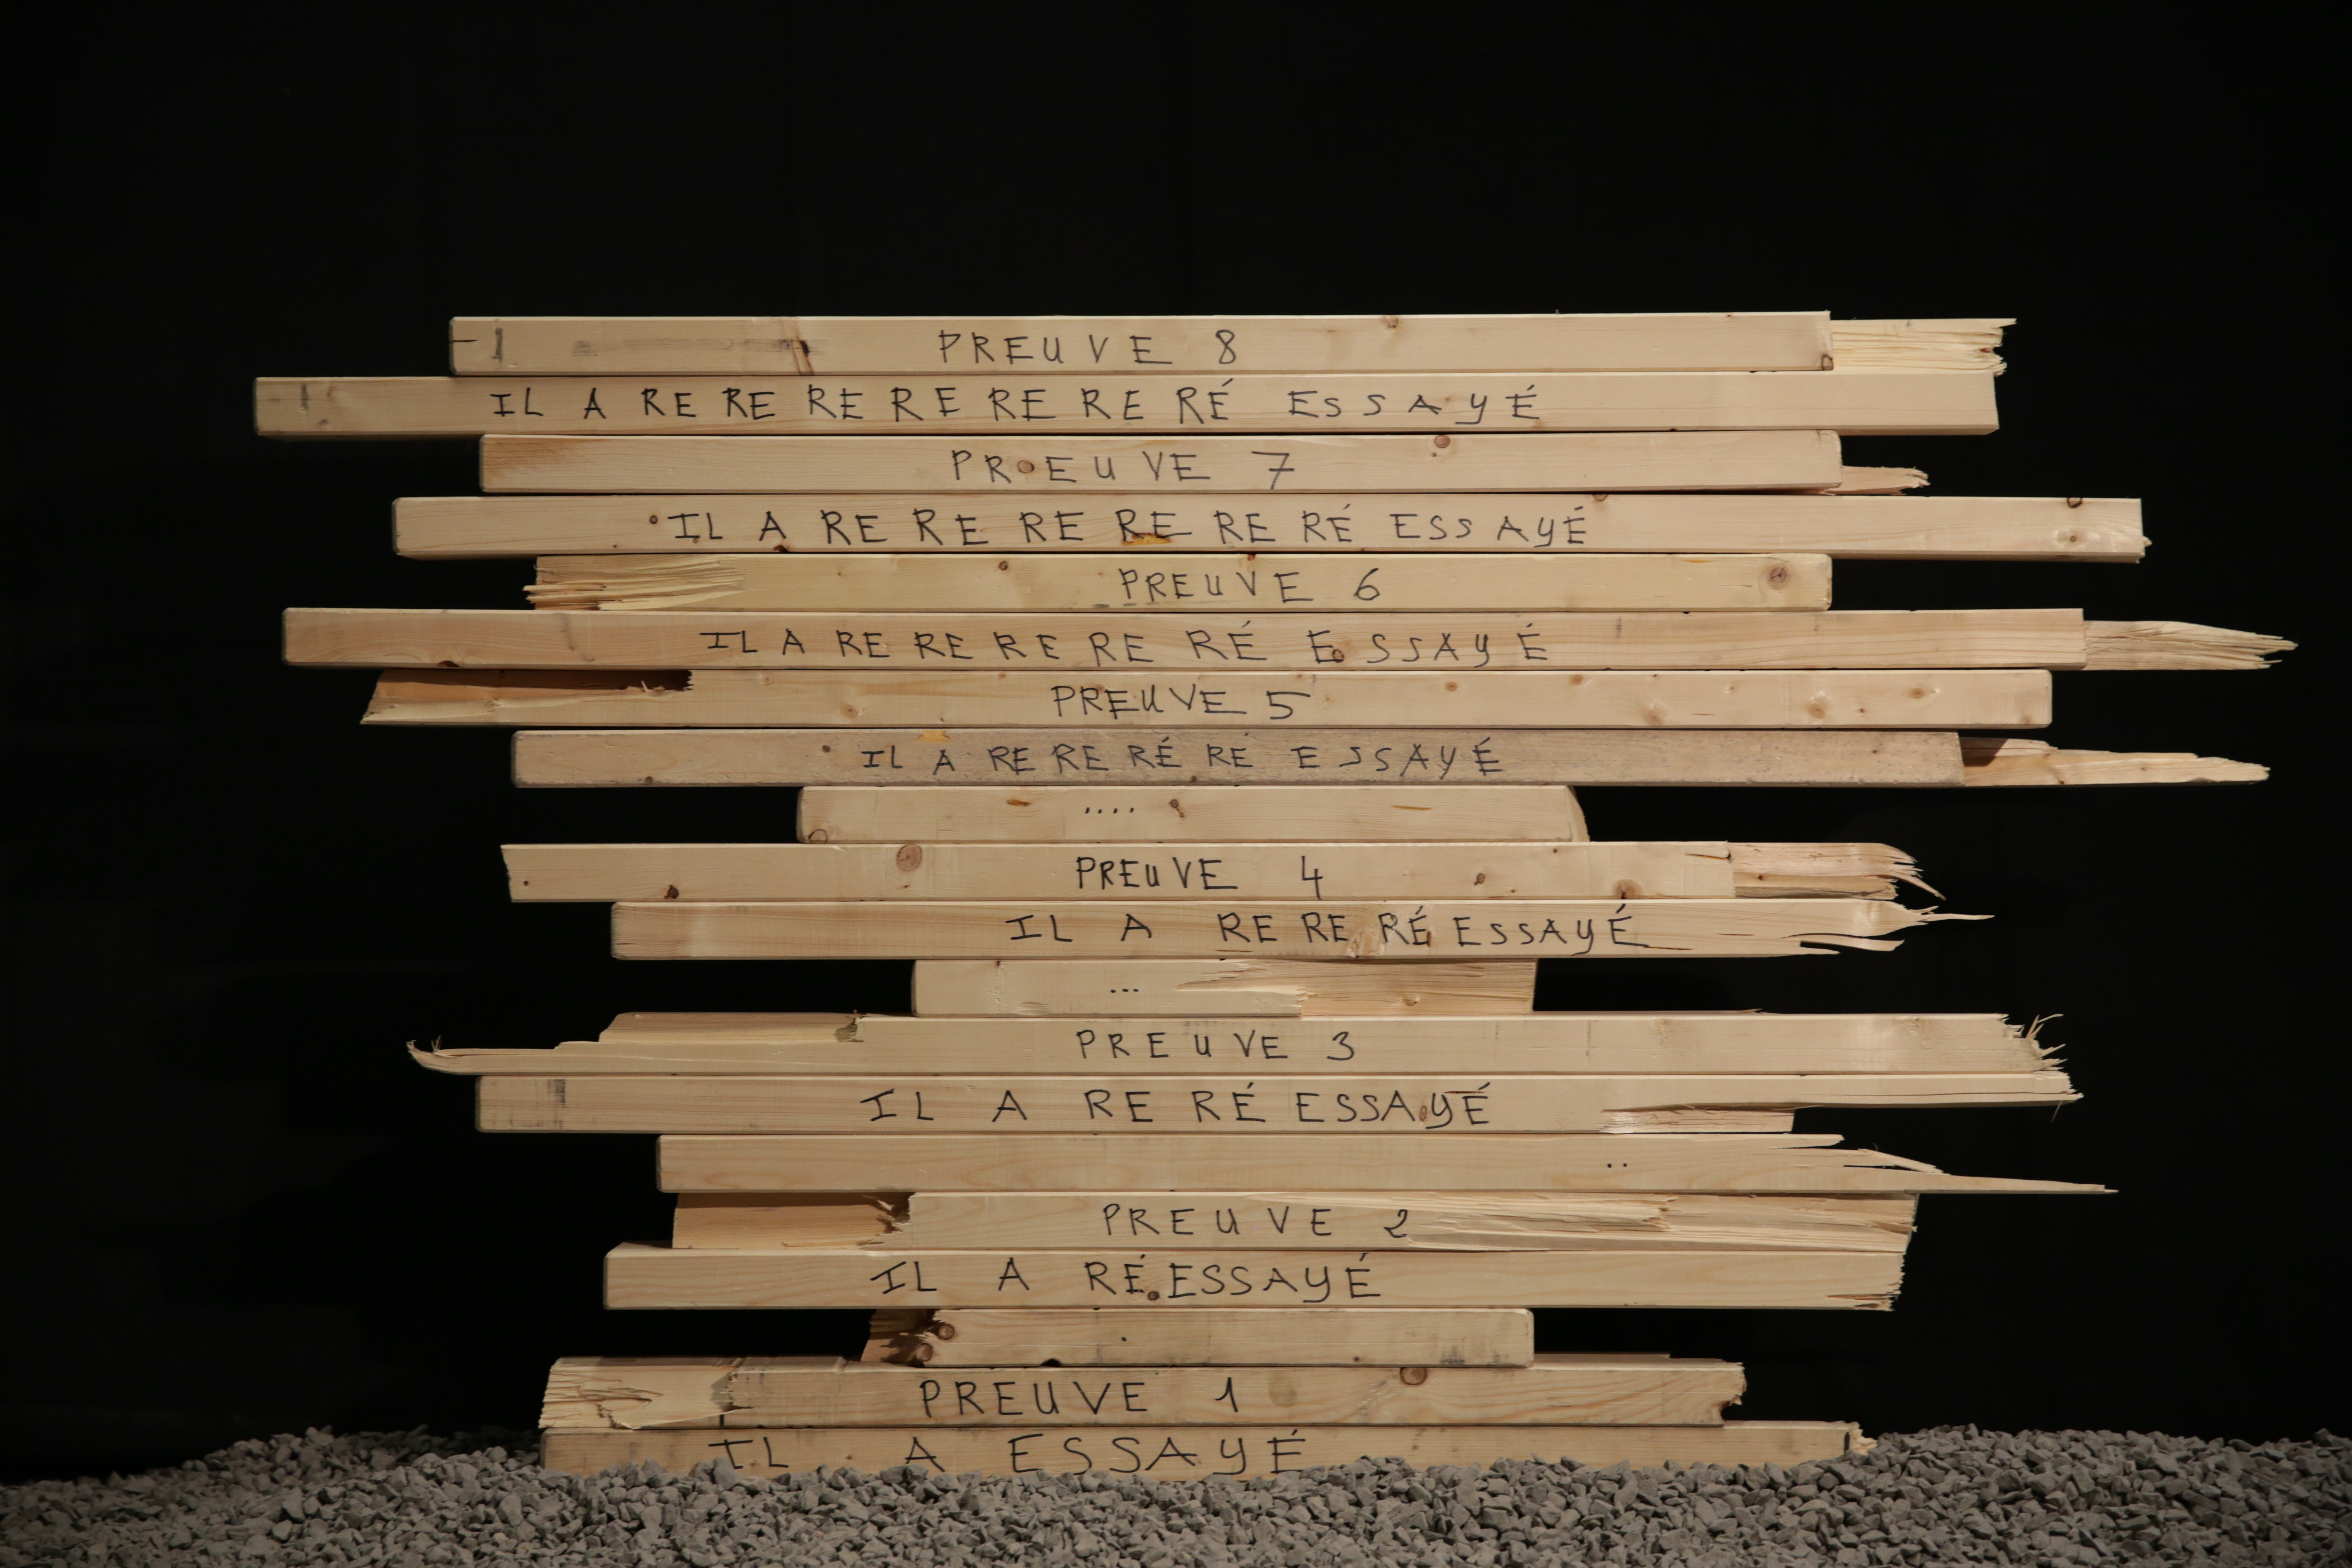 PREUVE 8
IL A RE RE RE RE RE RE RÉ ESSAYÉ
PREUVE 7
IL A RE RE RE RE RE RÉ ESSAYÉ
PREUVE 6
IL A RE RE RE RE RÉ ESSAYÉ
PREUVE 5
IL A RE RE RÉ RE ESSAYÉ
....
PREUVE 4
IL A RE RE RÉ ESSAYÉ
...
PREUVE 3
IL A RE RÉ ESSAYÉ
..
PREUVE 2
IL A RÉESSAYÉ
.
PREUVE 1
IL A ESSAYÉ